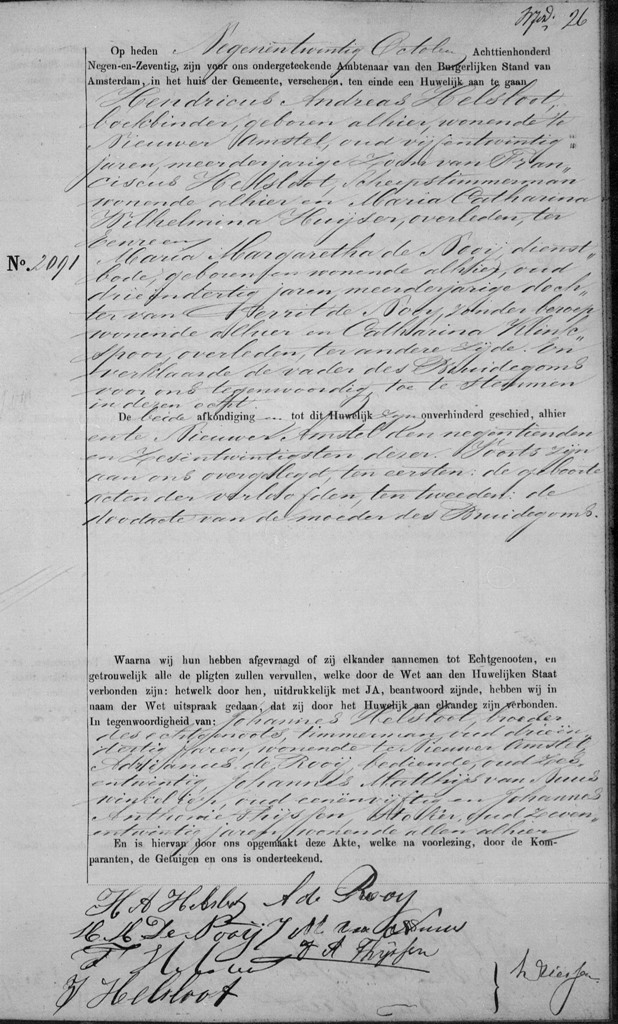 26
Op heden Negenentwintig October Achttienhonderd
Negen-en-Zeventig, zijn voor ons ondergeteekende Ambtenaar van den Burgerlijken Stand van
Amsterdam, in het huis der Gemeente, verschenen, ten einde een Huwelijk aan te gaan
Hendricus Andreas Helsloot,
boekbinder, geboren alhier, wonende te
Nieuwer Amstel, oud vijfentwintig
jaren, meerderjarige Zoon van Fran„
ciscus Helsloot, Scheepstimmerman
wonende alhier en Maria Catharina
Wilhelmina Huijser, overleden, ter
eenre en
Maria Margaretha de Rooij, dienst„
bode, geboren en wonende alhier, oud
drieëndertig jaren, meerderjarige doch„
No. 2091
ter van Gerrit de Rooy, zonder beroep
wonende alhier en Catharina Klink„
spoor, overleden, ter andere Zijde. En
verklaarde de vader des Bruidegoms
voor ons tegenwoordig toe te stemmen
in dezen echt.
De beide afkondiging en tot dit Huwelijk zijn onverhinderd geschied, alhier
en te Nieuwer Amstel den negentienden
en Zesentwintigsten dezer. Voorts zijn
aan ons overgelegd, ten eersten: de geboorte
acten der verloofden, ten tweeden: de
doodacte van de moeder des Bruidegoms.
Waarna wij hun hebben afgevraagd of zij elkander aannemen tot Echtgenooten, en
getrouwelijk alle de pligten zullen vervullen, welke door de Wet aan den Huwelijken Staat
verbonden zijn: hetwelk door hen, uitdrukkelijk met JA, beantwoord zijnde, hebben wij in
naam der Wet uitspraak gedaan, dat zij door het Huwelijk aan elkander zijn verbonden.
In tegenwoordigheid van: Johannes Helsloot, broeder
des echtgenoots, timmerman, oud drieën„
dertig jaren, wonende te Nieuwer Amstel,
Adrianus de Rooij, bediende, oud Zes„
entwintig, Johannes Matthijs van
oud eenenvijftig en Johannes
Anthonie Thijssen, oud Zeven„
entwintig jaren, wonende allen alhier
En is hiervan door ons opgemaakt deze Akte, welke na voorlezing, door de Kom-
paranten, de Getuigen en ons is onderteekend.
H A Helsloot A de Rooy
M. M. De Rooij J M van
J A Thijssen
J Helsloot